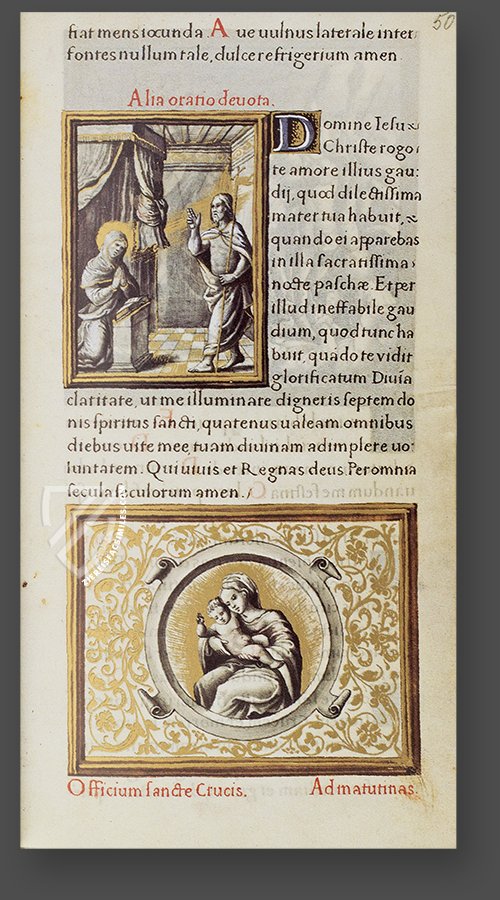 50
fiat mens iocunda. Aue uulnus laterale inter
fontes nullum tale, dulce refrigerium amen
Alia oratio deuota.
Domine Iesu
Christe rogo
te amore illius gau:
dij, quod dilectissima
mater tua habuit, &
quando ei apparebas
in illa sacratissima
nocte paschæ. Et per
illud ineffabile gau
dium, quod tunc ha
buit, quãdo te vidit
glorificatum Diuĩa
claritate, ut me illuminare digneris septem do
nis spiritus sancti, quatenus ualeam omnibus
diebus uite mee, tuam diuinam adimplere uo
luntatem. Qui uiuis et Regnas deus Per omnia
secula seculorum amen./
Officium sancte Crucis. Ad matutinas.